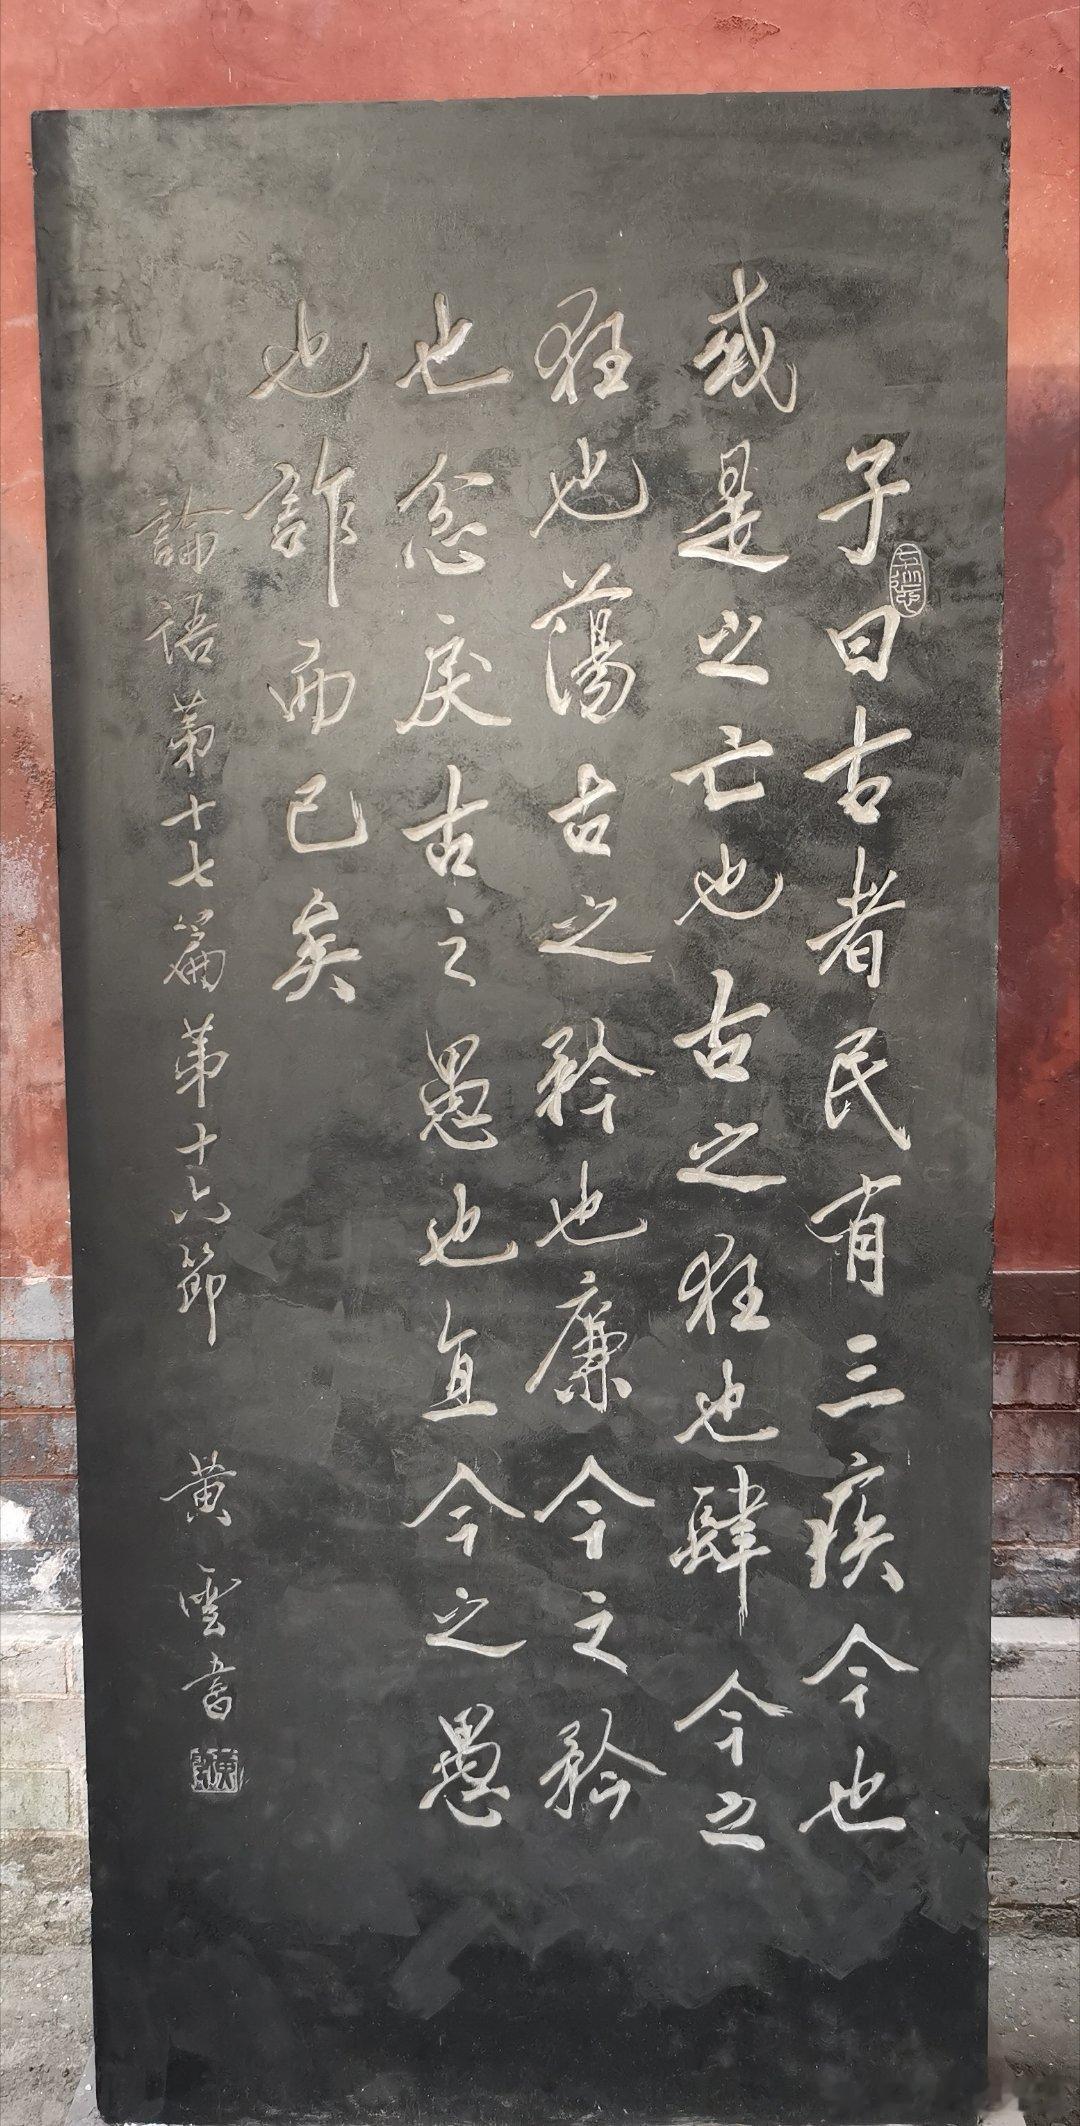 子曰古者民有三疾今也
或是之亡也古之狂也肆今之
狂也蕩古之矜也廉今之矜
也忿戾古之愚也直今之愚
也詐而已矣
論語第十七篇第十六節 黄雲書